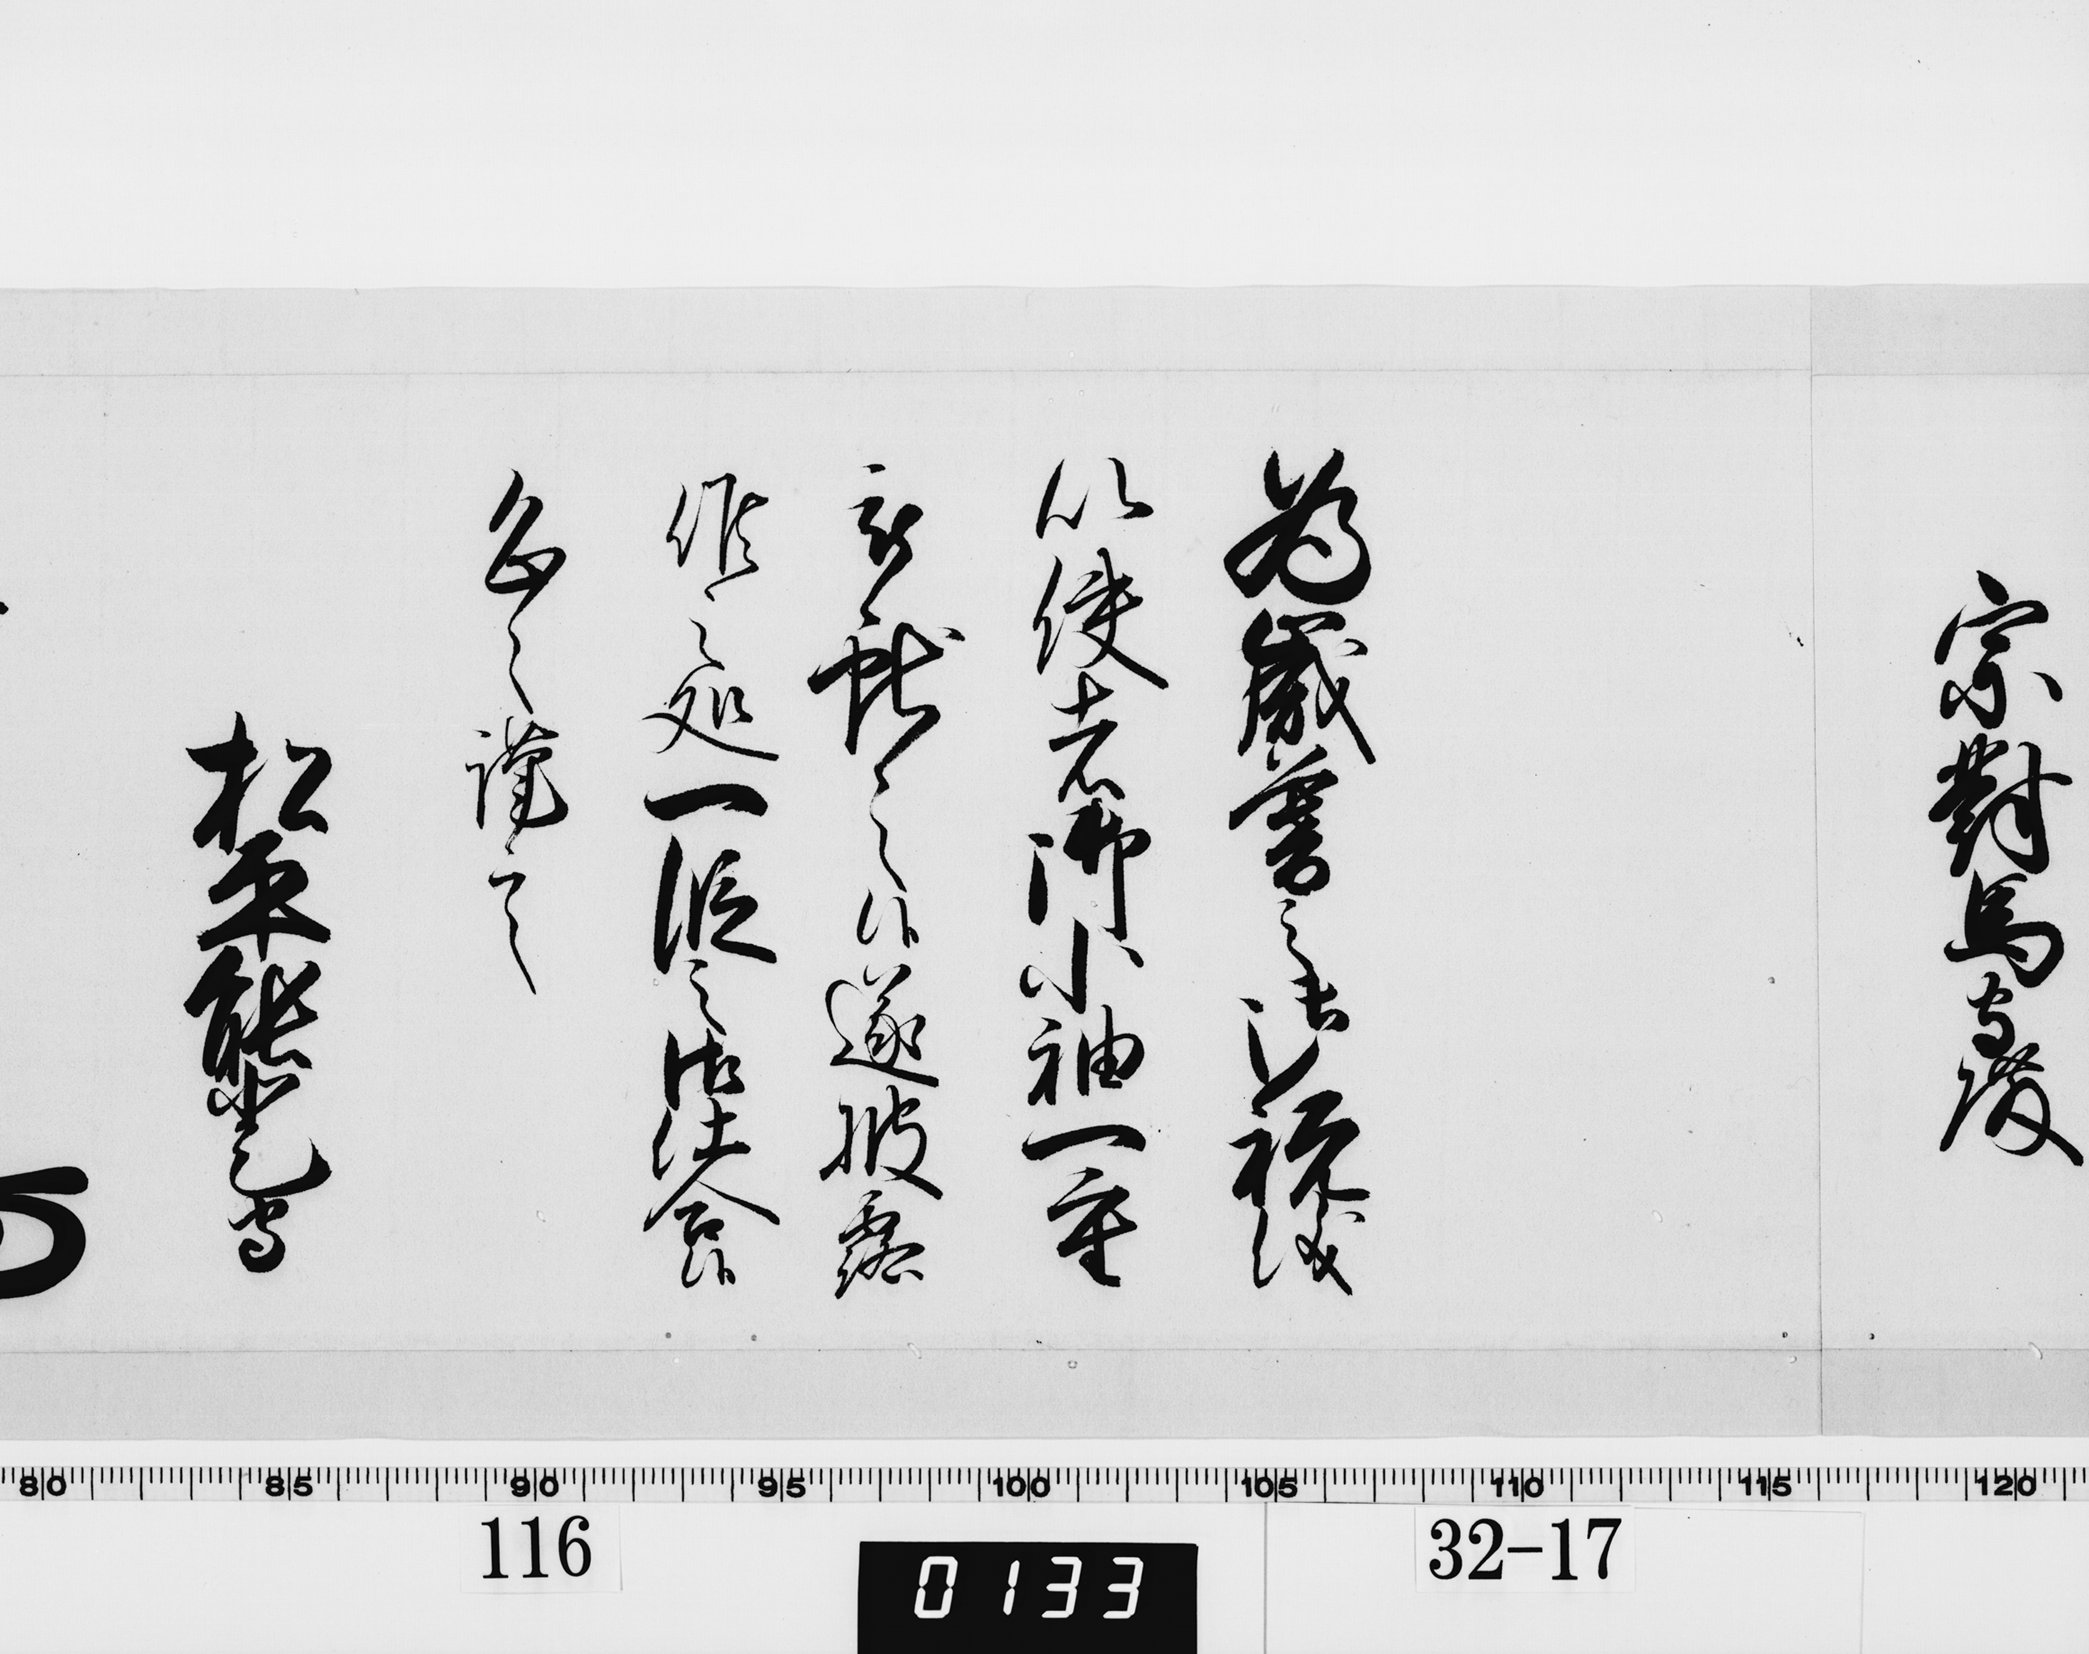 宗對馬守殿
為歳暮之御祝儀
以使者御小袖一重
被献之候遂披露
候之処一段之御仕合候
恐々謹言
松平能登守
80 85 90 95 100 105 110 115 120
116
0133
32-17